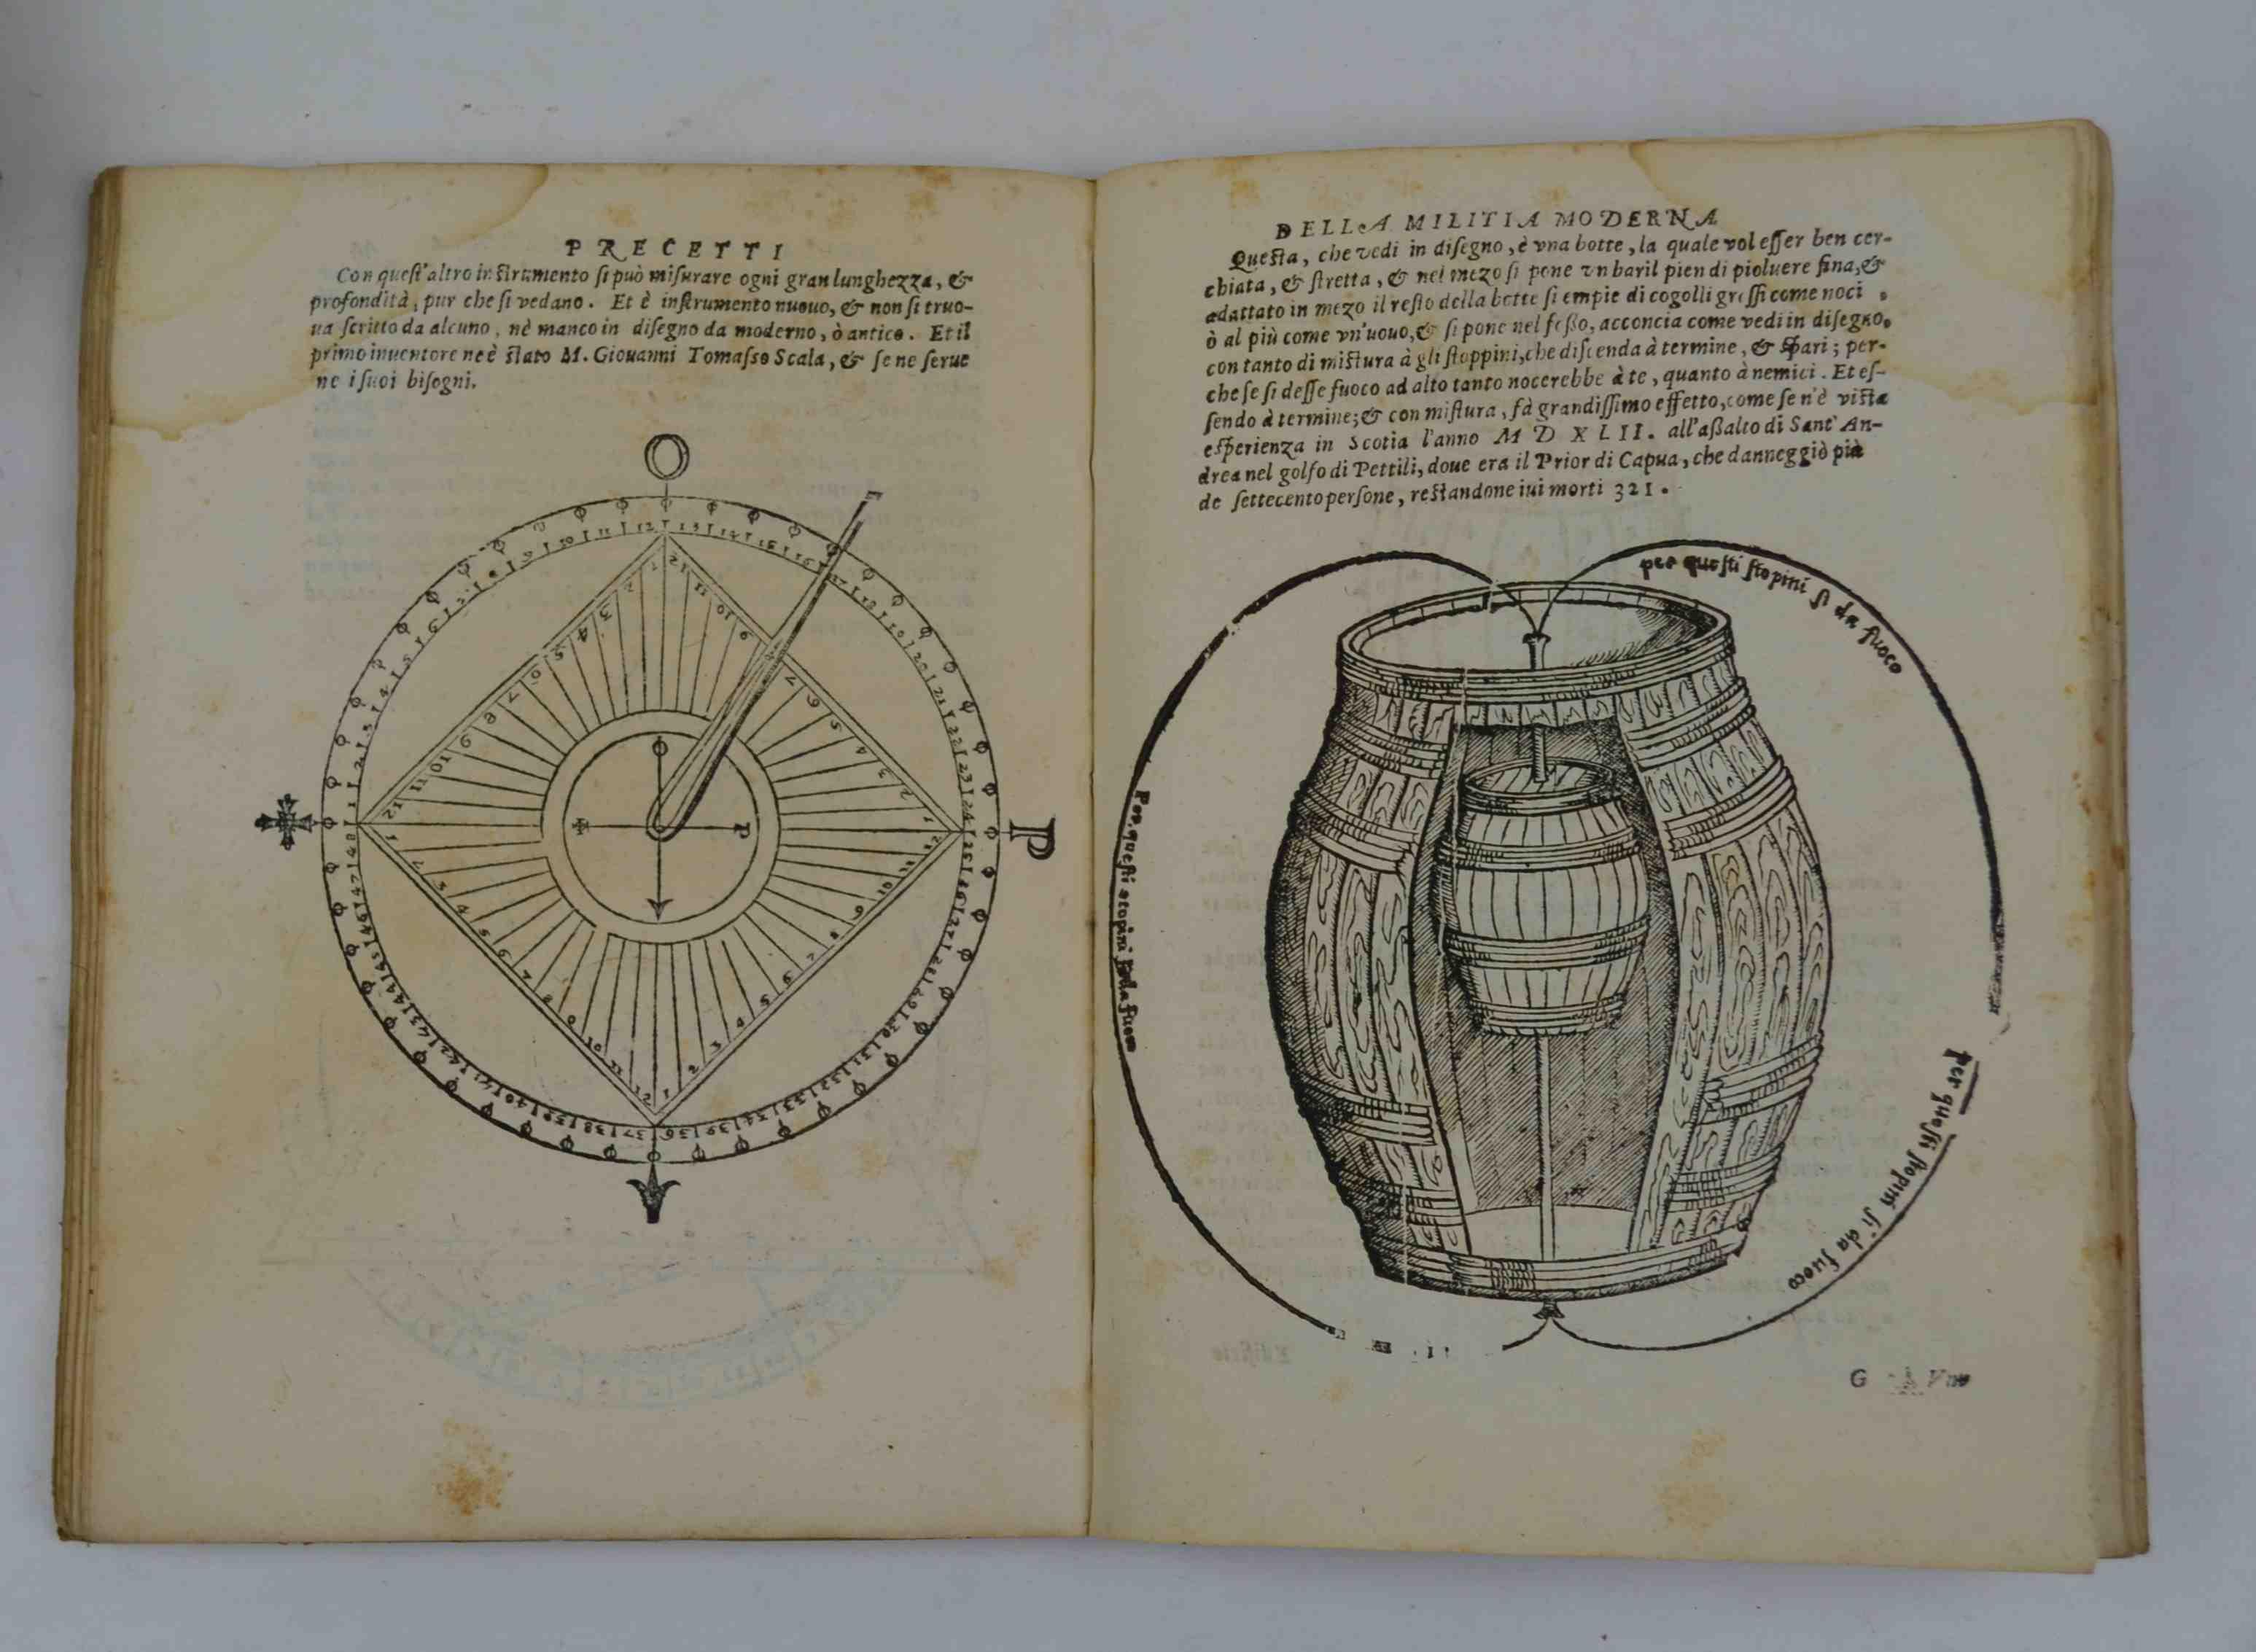 PRECETTI
Con queſt'altro inſtrumento ſi può miſurare ogni gran lunghezza, &
profondità, pur che ſi vedano. Et è inſtrumento nuouo, & non ſi truo-
ua ſcritto da alcuno, nè manco in diſegno da moderno, ò antico. Et il
primo inuentore ne è ſtato M. Giouanni Tomaſso Scala, & ſe ne ſerue
ne i ſuoi biſogni.
O
P
O
P
DELLA MILITIA MODERNA
Queſta, che vedi in diſegno, è vna botte, la quale vol eſſer ben cer-
chiata, & ſtretta, & nel mezo ſi pone vn baril pien di pioluere fina, &
adattato in mezo il reſto della botte ſi empie di cogolli groſſi come noci,
ò al più come vn'uouo, & ſi pone nel feſſo, acconcia come vedi in diſegno,
con tanto di miſtura à gli ſtoppini, che diſcenda à termine, & ſpari; per-
che ſe ſi deſſe fuoco ad alto tanto nocerebbe à te, quanto à nemici. Et eſ-
ſendo à termine; & con miſtura, fà grandiſſimo effetto, come ſe n'è viſta
eſperienza in Scotia l'anno M D XLII. all'aſſalto di Sant' An-
drea nel golfo di Pettili, doue era il Prior di Capua, che danneggiò più
de ſettecento perſone, reſtandone iui morti 321.
per queſti ſtopini ſi da fuoco
Per queſti stopini ſi da fuoco
per queſti ſtopini ſi da fuoco
G